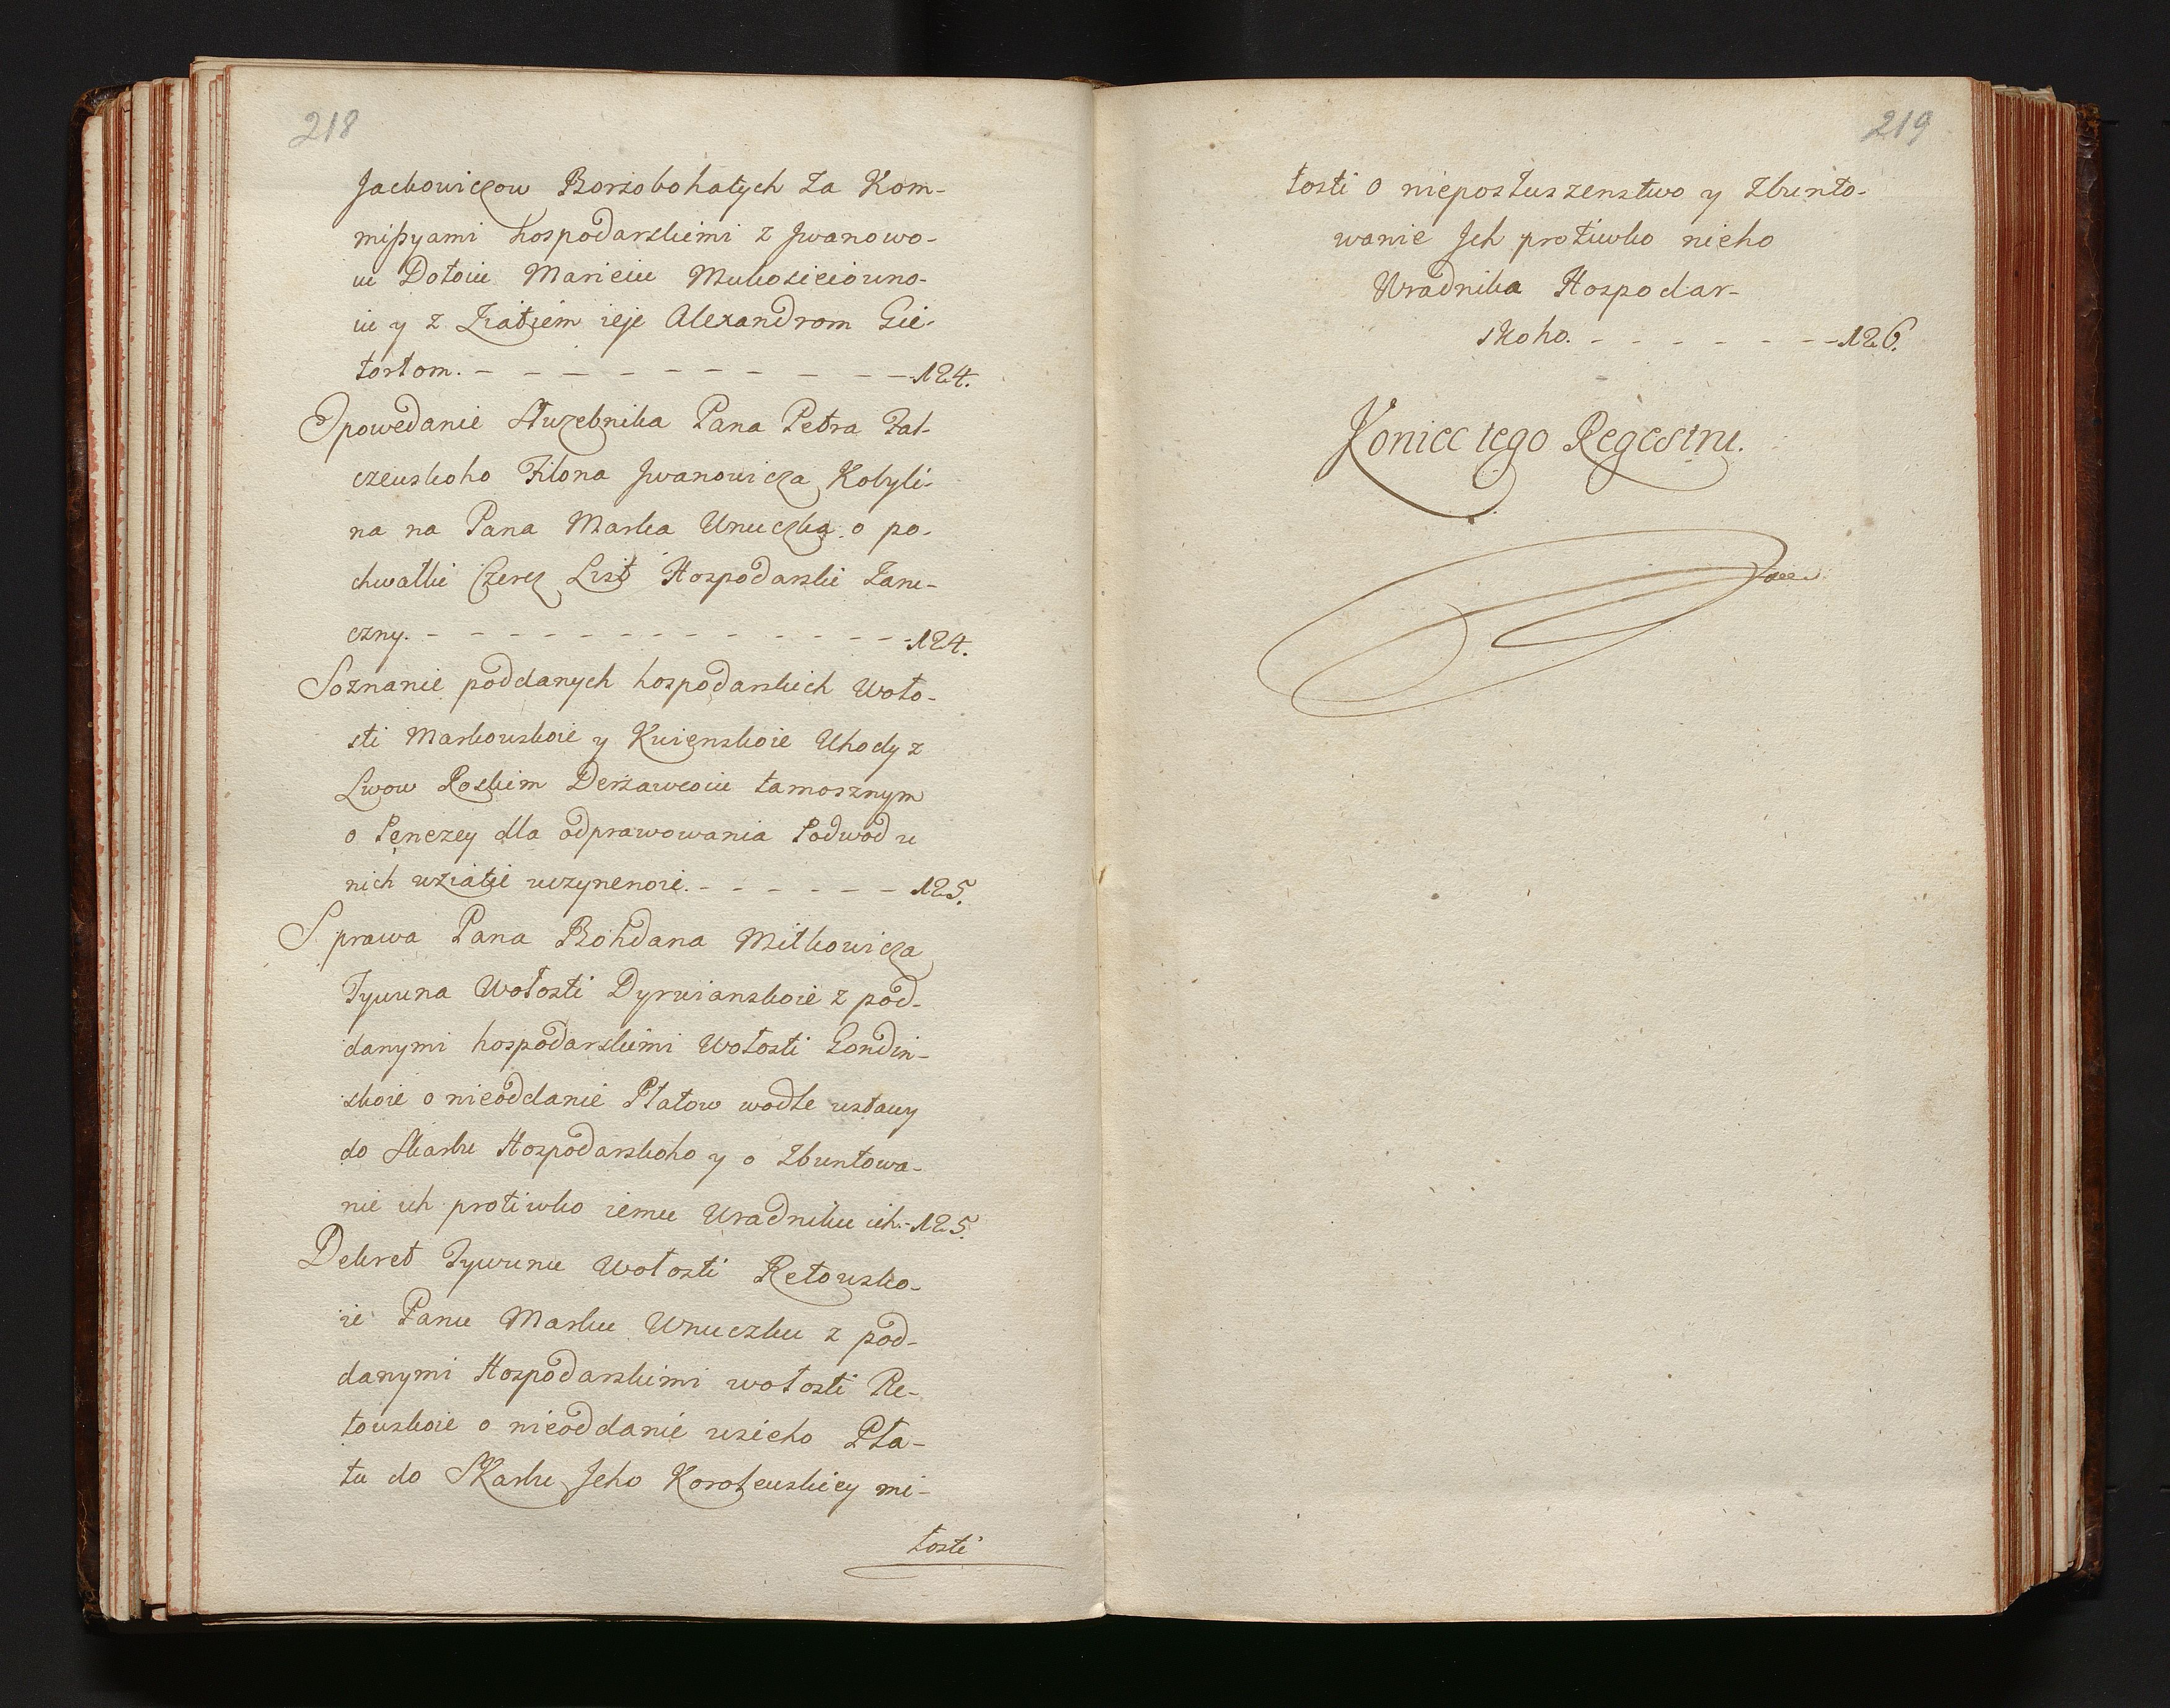 218
Jackowiczow Borzobohatych za Kom-
mißyami hospodarskiemi z Jwanowo-
iu Dotoiu Marieiu Mukosieiowno-
iu y z Ziatiem ieje Alexandrom Gie-
tortom. - - - - - - - - - - - 124.
Opowedanie Służebnika Pana Petra Zal-
czewskoho Filona Jwanowicza Kobyli-
na na Pana Marka Wnuczka o po-
chwałki Czerez List Hospodarski Zaru-
czny. - - - - - - - - - - - - - - 124.
Soznanie poddanych hospodarskich Woło-
sti Markowskoie y Kwienskoie Uhody z
Lwow Roskim Derżawcoiu tamosznym
o Penezey dla odprawowania Podwod u
nich wziatie uczynenoie. - - - - - - 125.
Sprawa Pana Bohdana Mitkowicza
Tywuna Wołosti Dyrwianskoie z pod-
danymi hospodarskiemi Wołosti Gondin-
skoie o nieoddanie Płatow wodle ustawy
do Skarbu Hospodarskoho y o Zbuntowa-
nie ich protiwko iemu Uradniku ich. - 125.
Dekret Tywunu Wołosti Retowsko-
ie Panu Marku Wnuczku z pod-
danymi Hospodarskimi wołosti Re-
towskoie o nieoddanie wsieho Pła-
tu do Skarbu Jeho Korolewskiey mi-
łosti
219
łosti o nieposłuszenstwo y Zbunto-
wanie Jch protiwko nieho
Uradnika Hospodar-
skoho. - - - - - - - 126.
Koniec tego Regestru.